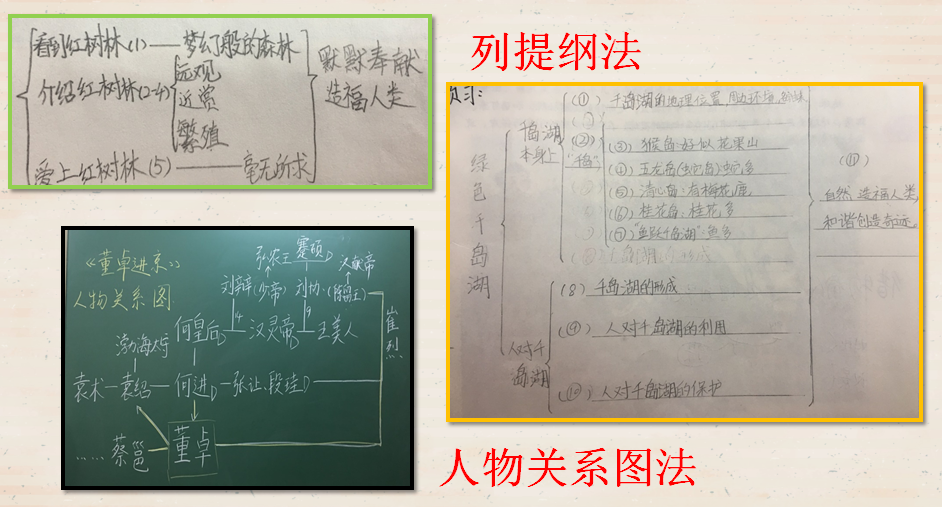 看到红树林(1)——梦幻般的森林
介绍红树林(2-4)
远观
近赏
繁殖
爱上红树林(5)——毫无所求
默默奉献
造福人类
列提纲法
绿色千岛湖
千岛湖
本身上
(1) 千岛湖的地理位置,周边环境,
(2)
"千岛"
(3) 猴岛:好似花果山
(4) 五龙岛(蛇岛):蛇多
(5) 清心岛:有梅花鹿
(6) 桂花岛:桂花多
(7) "鱼跃千岛湖":鱼多
(8) 千岛湖的形成
人对千
岛湖
(9) 人对千岛湖的利用
(10) 人对千岛湖的保护
(11)
自然 造福人类,
和谐创造奇迹
《董卓进京》
人物关系图
弘农王 蹇硕 汉献帝
刘辩(少帝) 刘协(陈留王)
渤海太守 何皇后 汉灵帝 王美人
崔烈
袁术—袁绍—何进—张让、段珪
……蔡邕—董卓
人物关系图法